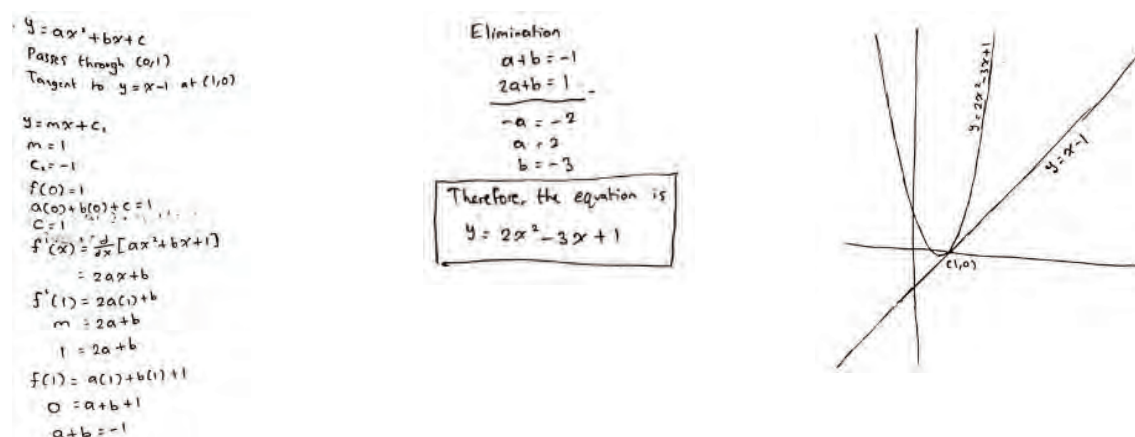 y = ax² + bx + c
Passes through (0,1)
Tangent to y = x-1 at (1,0)
y = mx + c₁
m = 1
c₁ = -1
f(0) = 1
a(0) + b(0) + c = 1
c = 1
f'(x) = d/dx [ax² + bx + 1]
= 2ax + b
f'(1) = 2a(1) + b
m = 2a + b
1 = 2a + b
f(1) = a(1) + b(1) + 1
0 = a + b + 1
a + b = -1
Elimination
a + b = -1
2a + b = 1 -
-a = -2
a = 2
b = -3
Therefore, the equation is
y = 2x² - 3x + 1
y = 2x² - 3x + 1
y = x-1
(1,0)